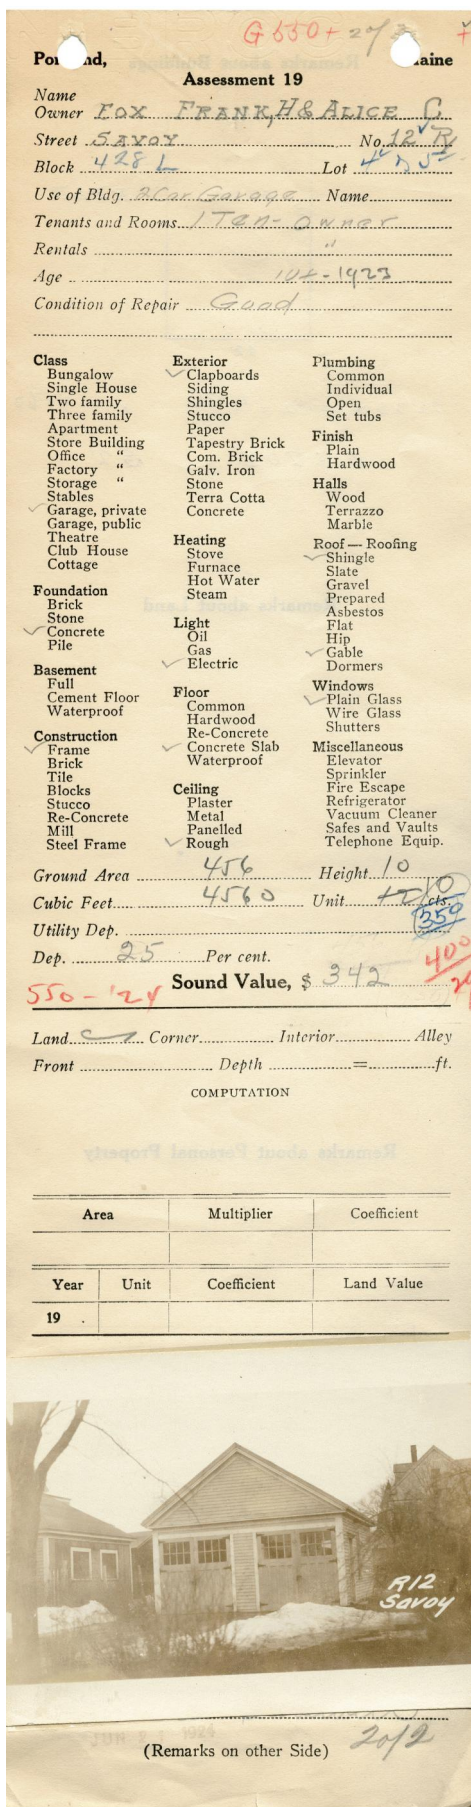 G 550+ 2 of 2
Portland, Maine
Assessment 19
Name
Owner FOX FRANK, H & ALICE C
Street SAVOY No. 12 R
Block 428 L Lot 4 & 5
Use of Bldg. 2 Car Garage Name
Tenants and Rooms 1 Ten - Owner
Rentals "
Age 10+ - 1923
Condition of Repair Good
Class
Bungalow
Single House
Two family
Three family
Apartment
Store Building
Office "
Factory "
Storage "
Stables
✓ Garage, private
Garage, public
Theatre
Club House
Cottage
Foundation
Brick
Stone
✓ Concrete
Pile
Basement
Full
Cement Floor
Waterproof
Construction
✓ Frame
Brick
Tile
Blocks
Stucco
Re-Concrete
Mill
Steel Frame
Exterior
✓ Clapboards
Siding
Shingles
Stucco
Paper
Tapestry Brick
Com. Brick
Galv. Iron
Stone
Terra Cotta
Concrete
Heating
Stove
Furnace
Hot Water
Steam
Light
Oil
Gas
✓ Electric
Floor
Common
Hardwood
Re-Concrete
✓ Concrete Slab
Waterproof
Ceiling
Plaster
Metal
Panelled
✓ Rough
Plumbing
Common
Individual
Open
Set tubs
Finish
Plain
Hardwood
Halls
Wood
Terrazzo
Marble
Roof — Roofing
✓ Shingle
Slate
Gravel
Prepared
Asbestos
Flat
Hip
✓ Gable
Dormers
Windows
✓ Plain Glass
Wire Glass
Shutters
Miscellaneous
Elevator
Sprinkler
Fire Escape
Refrigerator
Vacuum Cleaner
Safes and Vaults
Telephone Equip.
Ground Area 456 Height 10
Cubic Feet 4560 Unit 10 cts.
Utility Dep. 359
Dep. 25 Per cent. 400
550 - '24 Sound Value, $ 342
Land Corner Interior Alley
Front Depth = ft.
COMPUTATION
Area Multiplier Coefficient
Year Unit Coefficient Land Value
19 .
R12
Savoy
(Remarks on other Side) 2 of 2